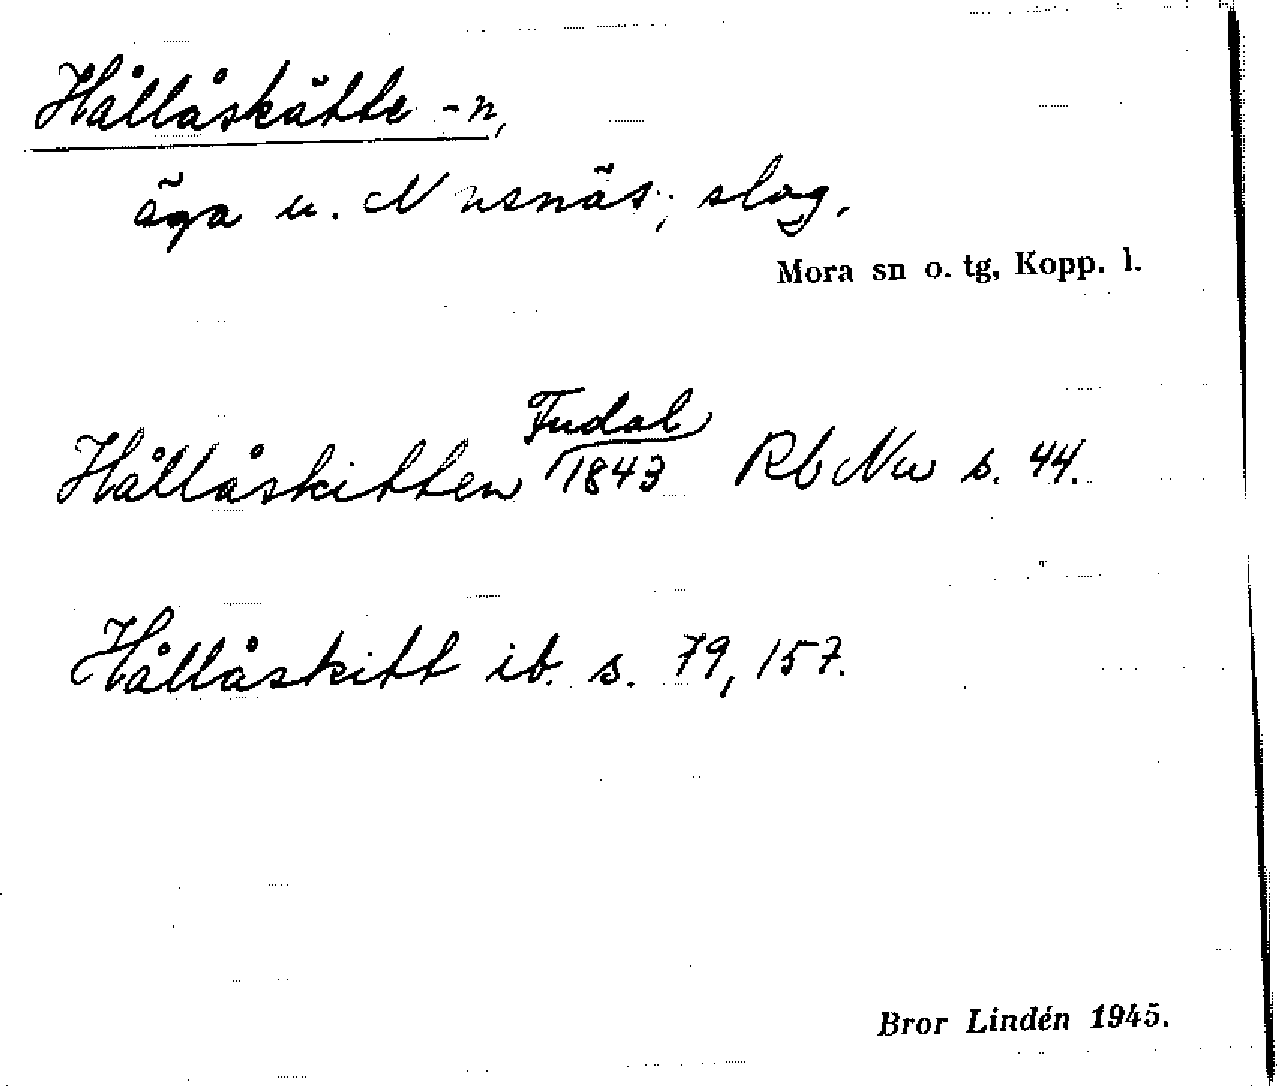 Hållåskätte -n,
äga u. Nusnäs; slog.
Mora sn o. tg, Kopp. l.
Hållåskitten Fudal 1843 Rb Nu s. 44.
Hållåskitt ib. s. 79, 157.
Bror Lindén 1945.